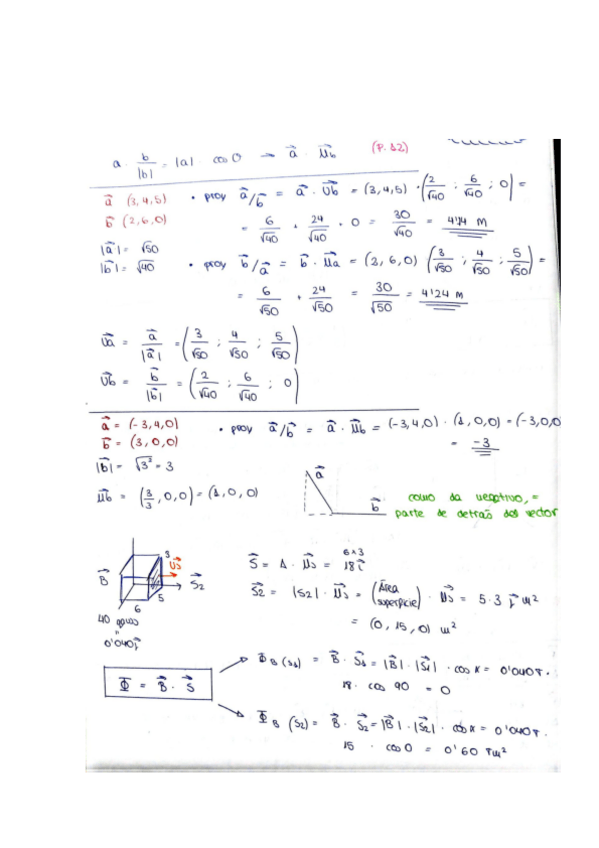 a · b/|b| = |a| · cos O → a⃗ · μ⃗b (P. 12)
a⃗ (3,4,5)
b⃗ (2,6,0)
|a⃗| = √50
|b⃗| = √40
• proy a⃗/b⃗ = a⃗ · U⃗b = (3,4,5) · (2/√40 ; 6/√40 ; 0) =
= 6/√40 + 24/√40 + 0 = 30/√40 = 4'24 m
• proy b⃗/a⃗ = b⃗ · μ⃗a = (2,6,0) (3/√50 ; 4/√50 ; 5/√50) =
= 6/√50 + 24/√50 = 30/√50 = 4'24 m
U⃗a = a⃗/|a⃗| = (3/√50 ; 4/√50 ; 5/√50)
U⃗b = b⃗/|b⃗| = (2/√40 ; 6/√40 ; 0)
a⃗ = (-3,4,0)
b⃗ = (3,0,0)
• proy a⃗/b⃗ = a⃗ · μ⃗b = (-3,4,0) · (1,0,0) = (-3,0,0
= -3
|b⃗| = √3² = 3
μ⃗b = (3/3, 0, 0) = (1,0,0)
a⃗
b⃗
como da negativo, =
parte de detrás del vector
B⃗
3
U⃗s
S⃗2
5
6
40 gauss
"
0'040j⃗
S⃗ = A · μ⃗s = 6×3 18i⃗
S⃗2 = |S2| · μ⃗s = (Área superficie) · μ⃗s = 5·3 j⃗ m²
= (0, 15, 0) m²
Φ⃗ = B⃗ · S⃗
Φ B (S1) = B⃗ · S⃗1 = |B⃗| · |S⃗1| · cos α = 0'040 T ·
18 · cos 90 = 0
Φ B (S2) = B⃗ · S⃗2 = |B⃗| · |S⃗2| · cos α = 0'040 T ·
15 · cos 0 = 0'60 Tm²